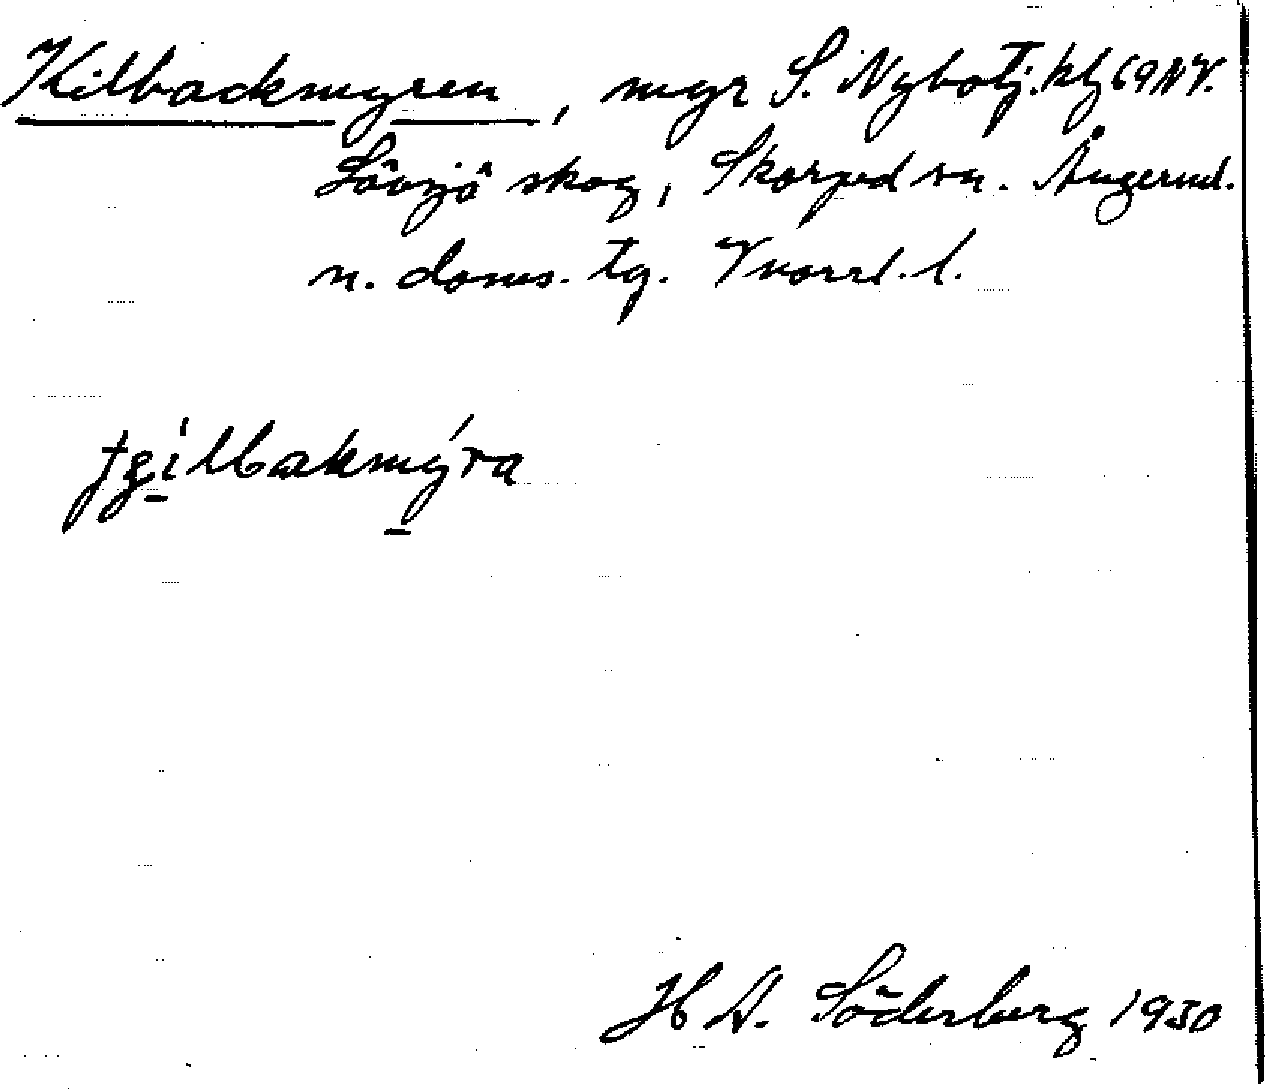 Kilbackmyren, myr S. Nybotj. kbl 69 NV.
Lövsjö skog, Skorped sn. Ångerml.
n. doms. tg. Vnorrl. l.
tgilbakmýra
H A. Söderberg 1930